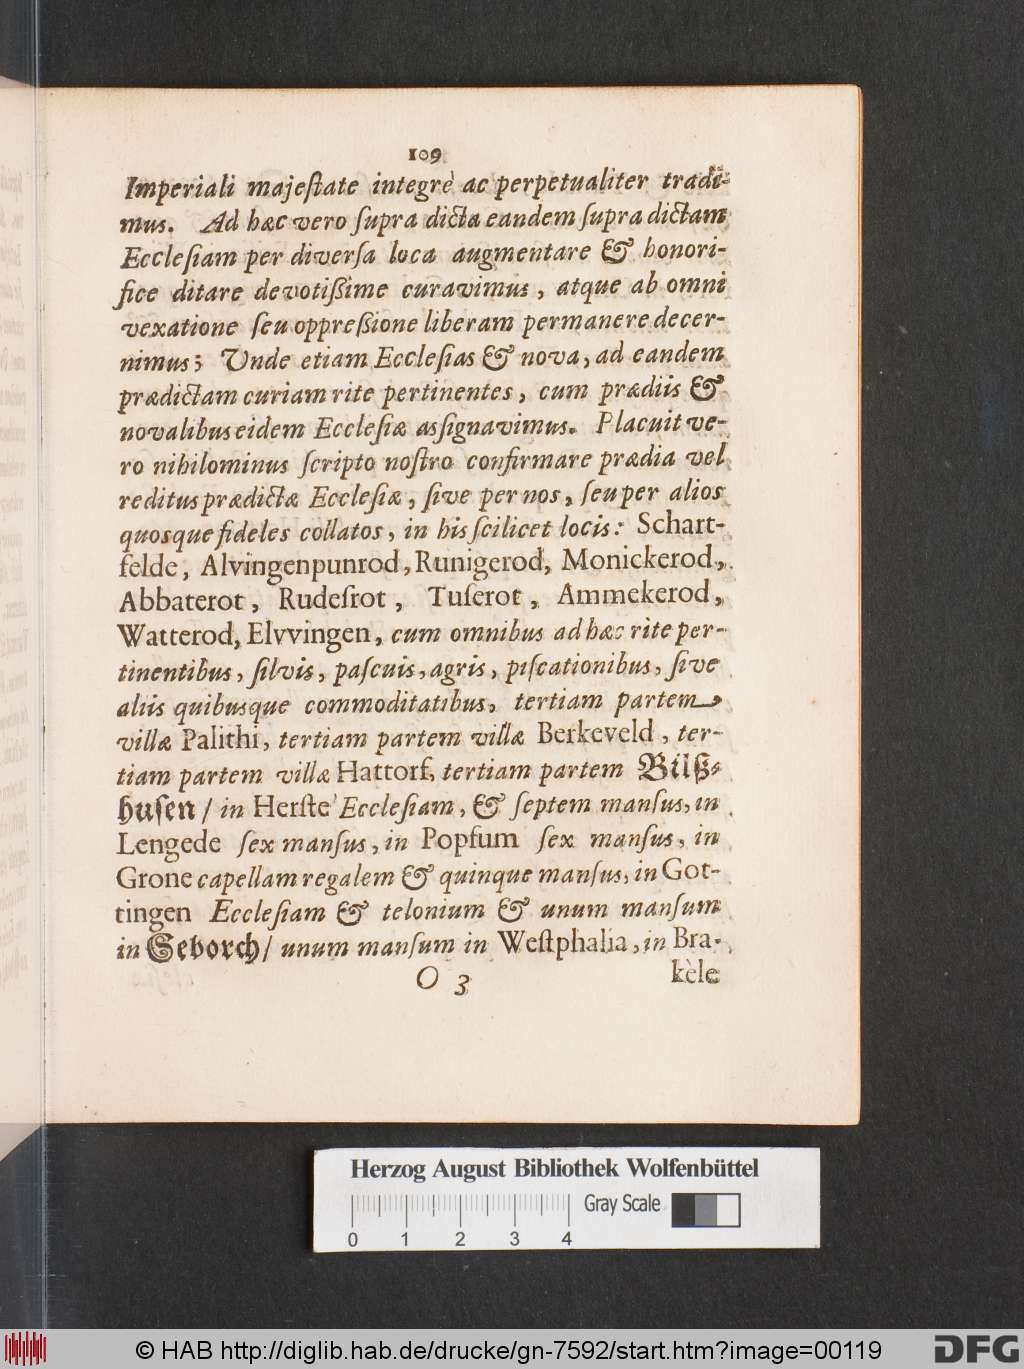 109
Imperiali majeſtate integrè ac perpetualiter tradi-
mus. Ad hæc vero ſupra dicta eandem ſupra dictam
Eccleſiam per diverſa loca augmentare & honori-
fice ditare devotißime curavimus, atque ab omni
vexatione ſeu oppreßione liberam permanere decer-
nimus; Unde etiam Eccleſias & nova, ad eandem
prædictam curiam rite pertinentes, cum prædiis &
novalibus eidem Eccleſiæ asſignavimus. Placuit ve-
ro nihilominus ſcripto noſtro confirmare prædia vel
reditus prædictæ Eccleſiæ, ſive per nos, ſeu per alios
quosque fideles collatos, in his ſcilicet locis: Schart-
felde, Alvingenpunrod, Runigerod, Monickerod,
Abbaterot, Rudeſrot, Tuſerot, Ammekerod,
Watterod, Elvvingen, cum omnibus ad hæc rite per-
tinentibus, ſilvis, paſcuis, agris, piſcationibus, ſive
aliis quibusque commoditatibus, tertiam partem
villæ Palithi, tertiam partem villæ Berkeveld, ter-
tiam partem villæ Hattorf, tertiam partem Bilß-
huſen / in Herſte Eccleſiam, & ſeptem manſus, in
Lengede ſex manſus, in Popſum ſex manſus, in
Grone capellam regalem & quinque manſus, in Got-
tingen Eccleſiam & telonium & unum manſum
in Seborch / unum manſum in Weſtphalia, in Bra-
O 3 kèle
Herzog August Bibliothek Wolfenbüttel
Gray Scale
0 1 2 3 4
© HAB http://diglib.hab.de/drucke/gn-7592/start.htm?image=00119
DFG